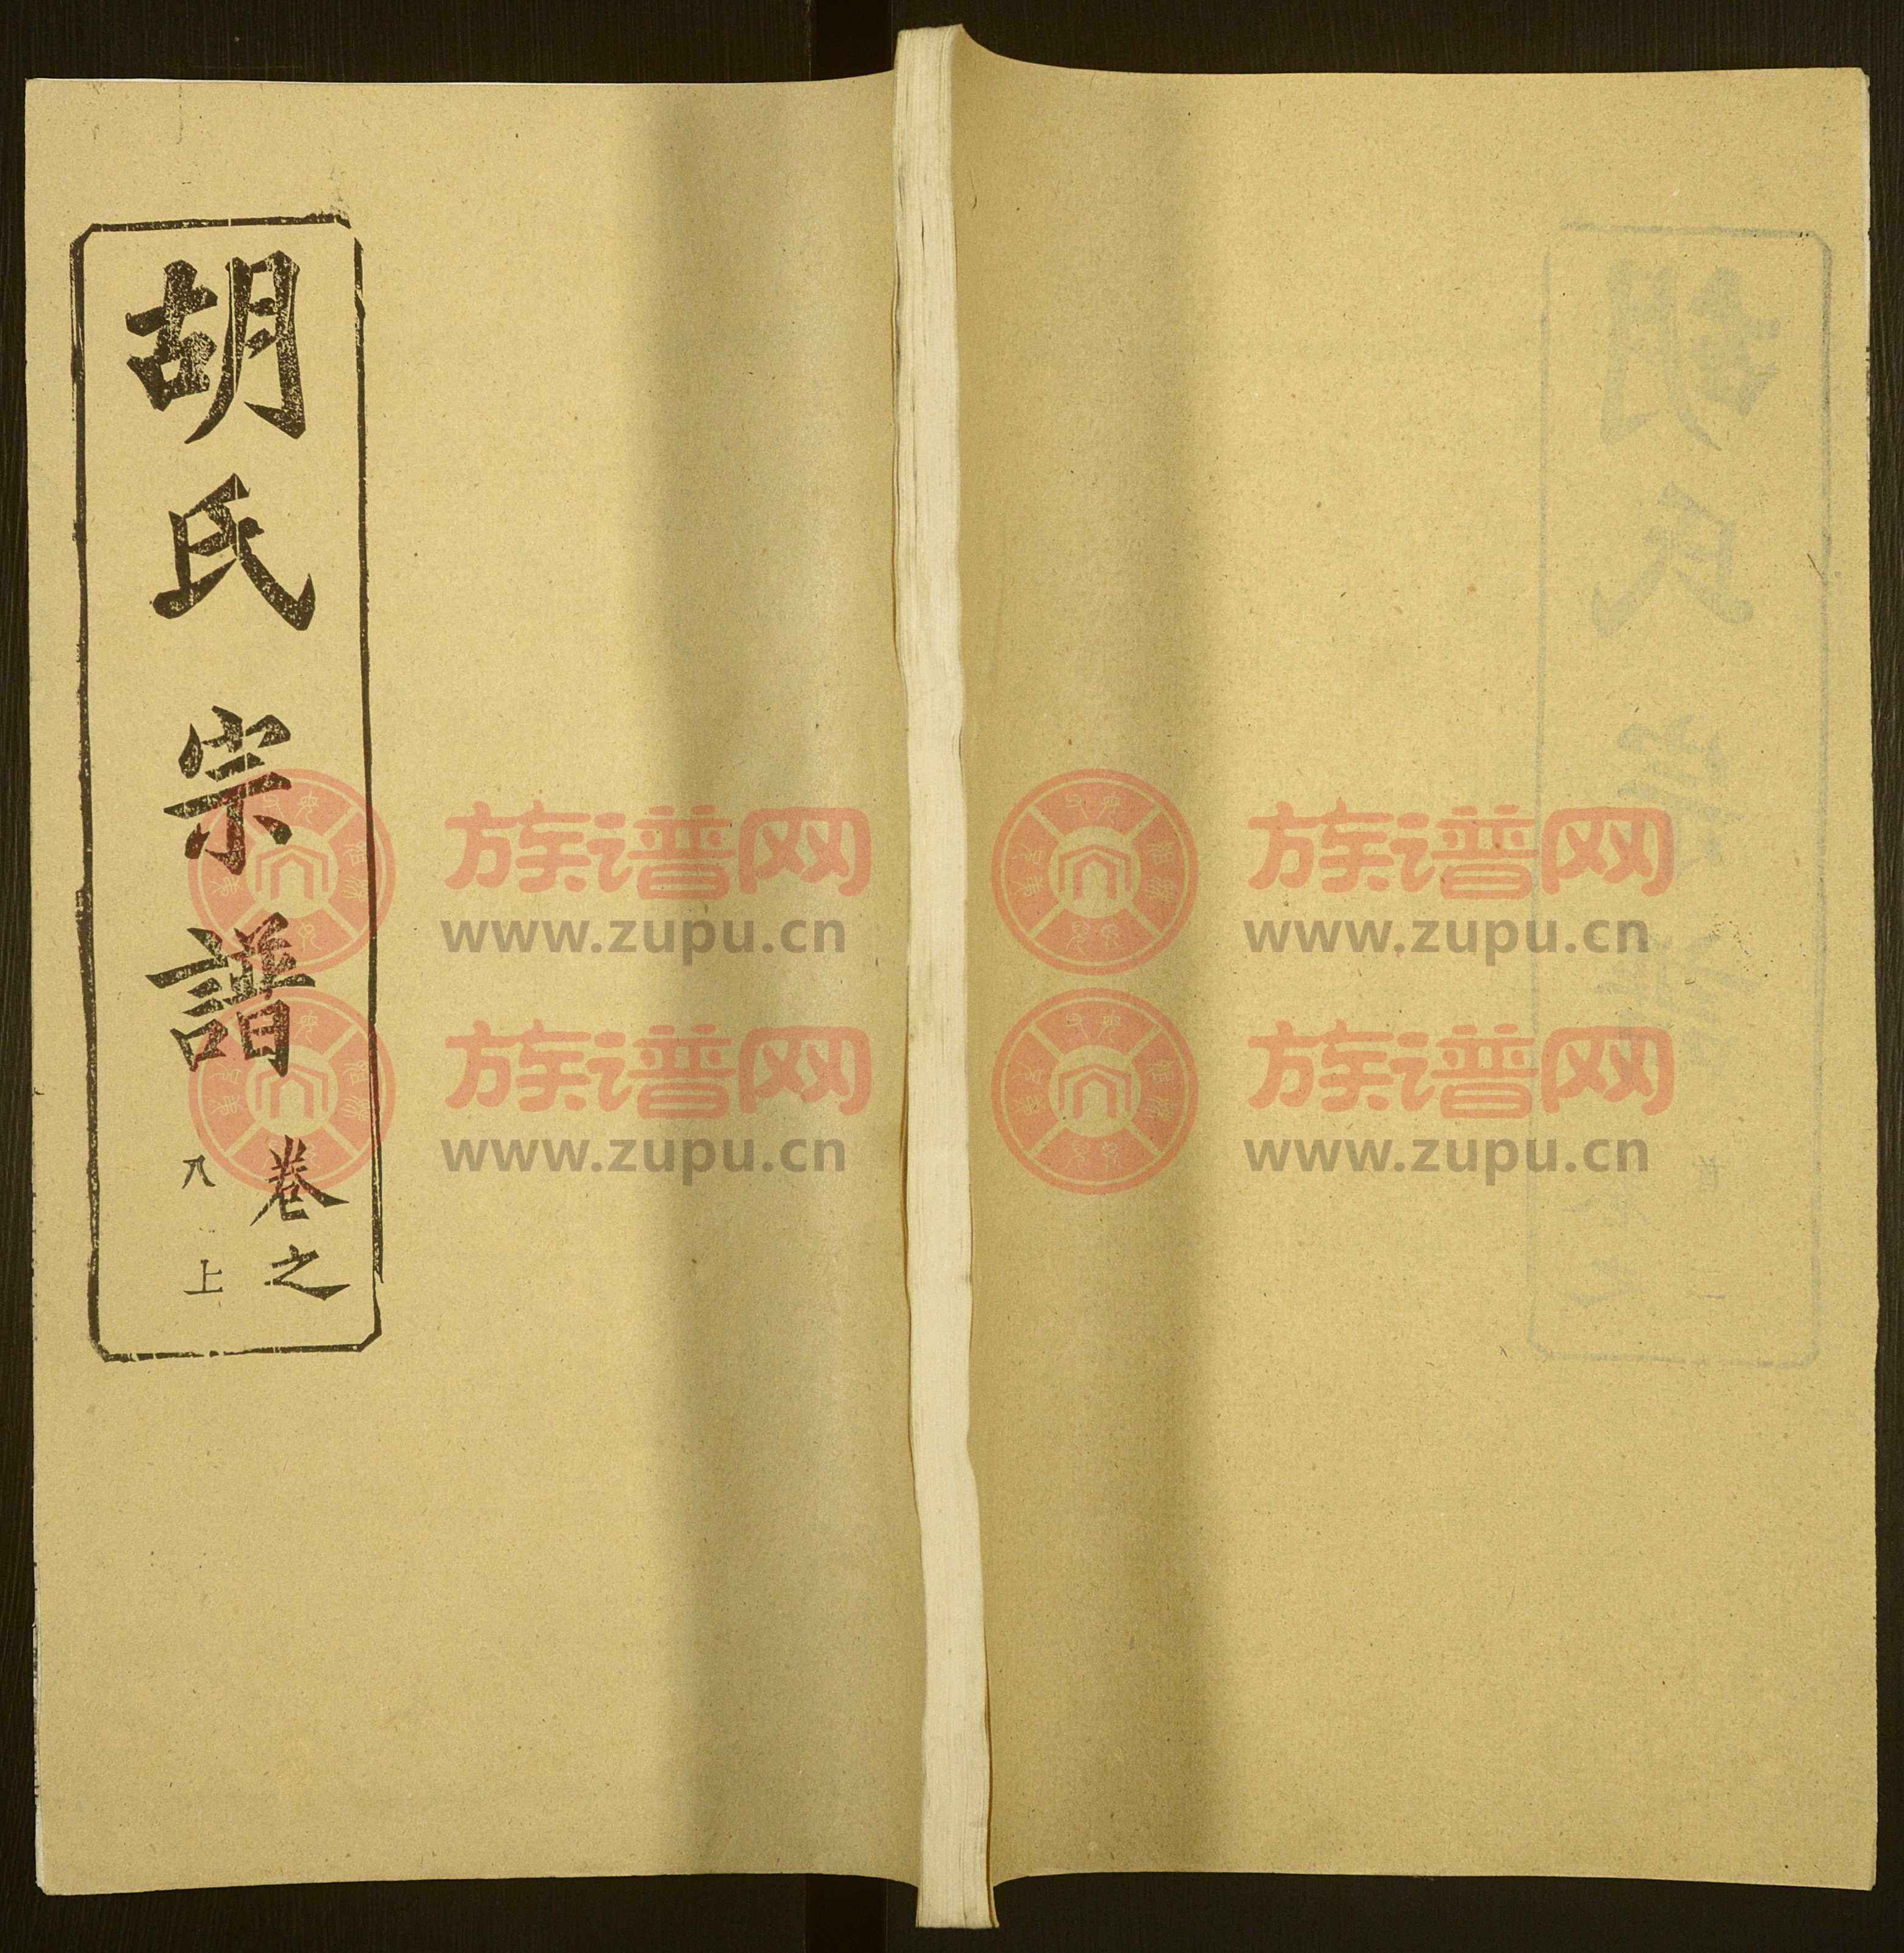 胡氏宗譜
卷之
八上
族谱网
www.zupu.cn
族谱网
www.zupu.cn
族谱网
www.zupu.cn
族谱网
www.zupu.cn